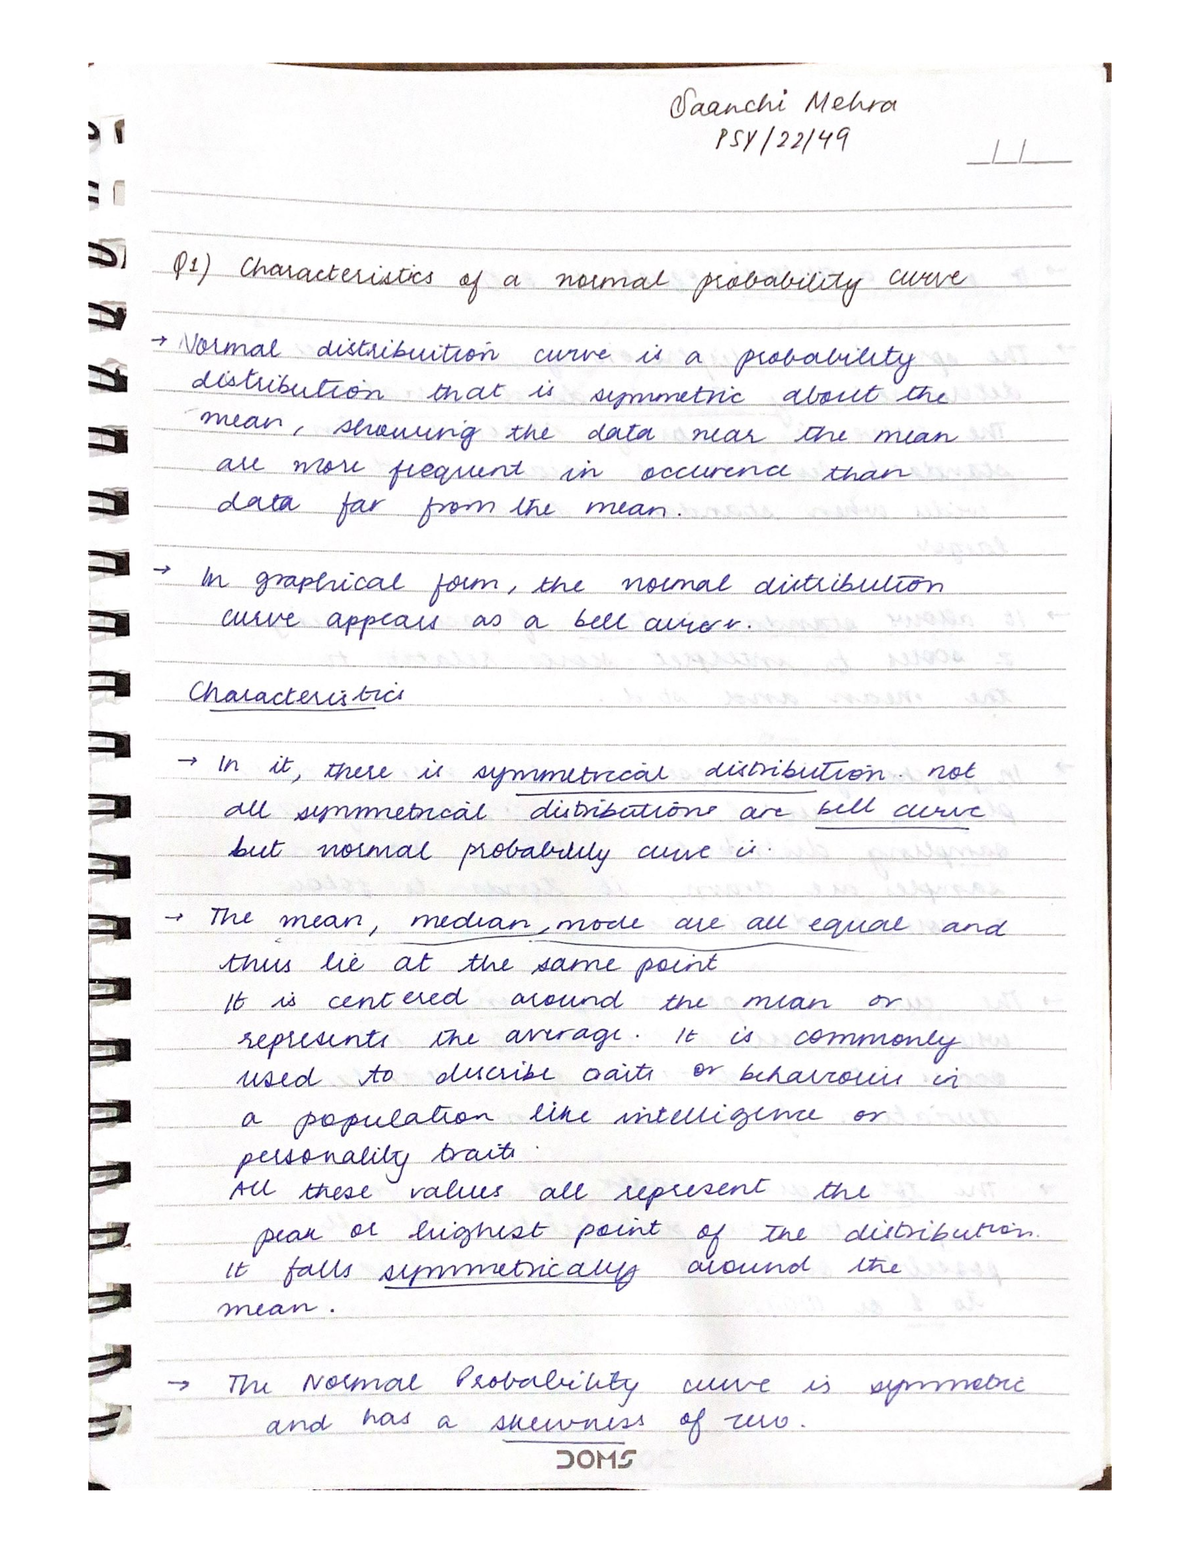 Saanchi Mehra
PSY/22/49
Q1) Characteristics of a normal probability curve
→ Normal distribuition curve is a probability
distribution that is symmetric about the
mean, showing the data near the mean
are more frequent in occurence than
data far from the mean.
→ In graphical form, the normal distribution
curve appears as a bell curve.
Characteristics
→ In it, there is symmetrical distribution. not
all symmetrical distributions are bell curve
but normal probability curve is.
→ The mean, median, mode are all equal and
thus lie at the same point
It is centered around the mean or
represents the average. It is commonly
used to describe traits or behaviours in
a population like intelligence or
personality traits.
All these values all represent the
peak or highest point of the distribution.
It falls symmetrically around the
mean.
→ The Normal Probability curve is symmetric
and has a skewness of zero.
DOMS